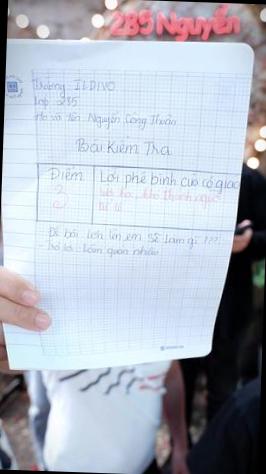 285 Nguyễn
Trường ILDIVO
Lớp 285
Họ và tên Nguyễn Công Thuần
Bài Kiểm Tra
Điểm
Lời phê bình của cô giáo
2
Đề bài Lớn lên em sẽ làm gì ???
Trả lời: Làm quán nhậu